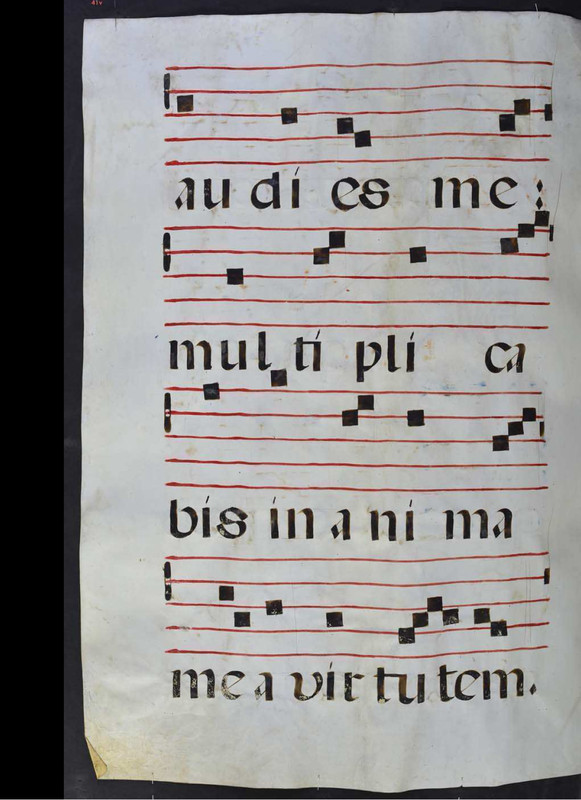 au dí es me:
mul tí plí ca
bis in a ni ma
me a vir tu tem.